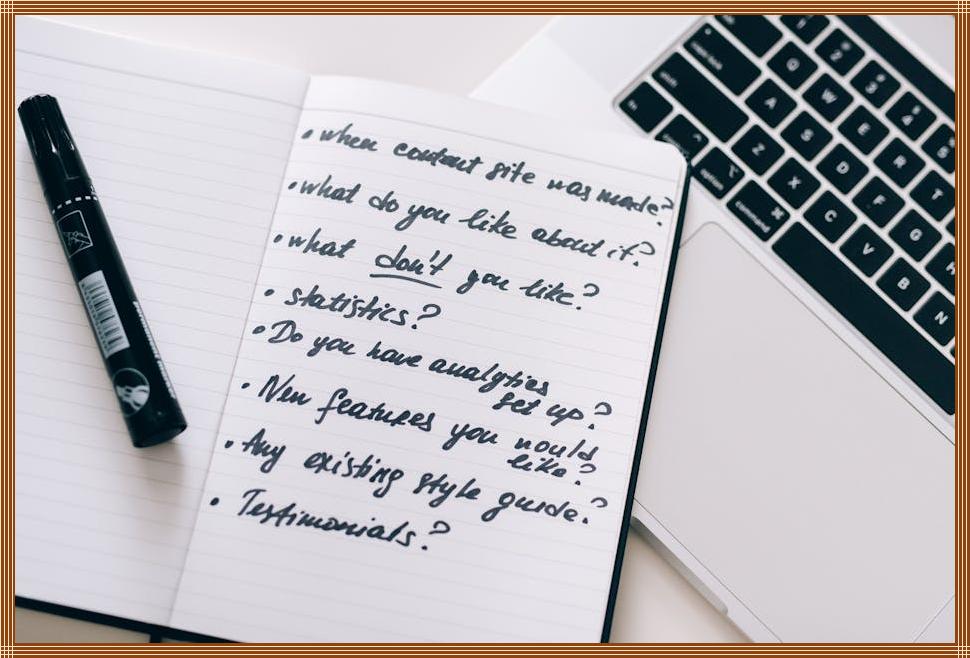 • when content site was made?
• what do you like about it?
• what don't you like?
• statistics?
• Do you have analytics
set up?
• New features you would
like?
• Any existing style guide?
• Testimonials?
fn
shift
option
command
⌘
1
2
3
4
5
Q
W
E
R
T
A
S
D
F
G
Z
X
C
V
B
N